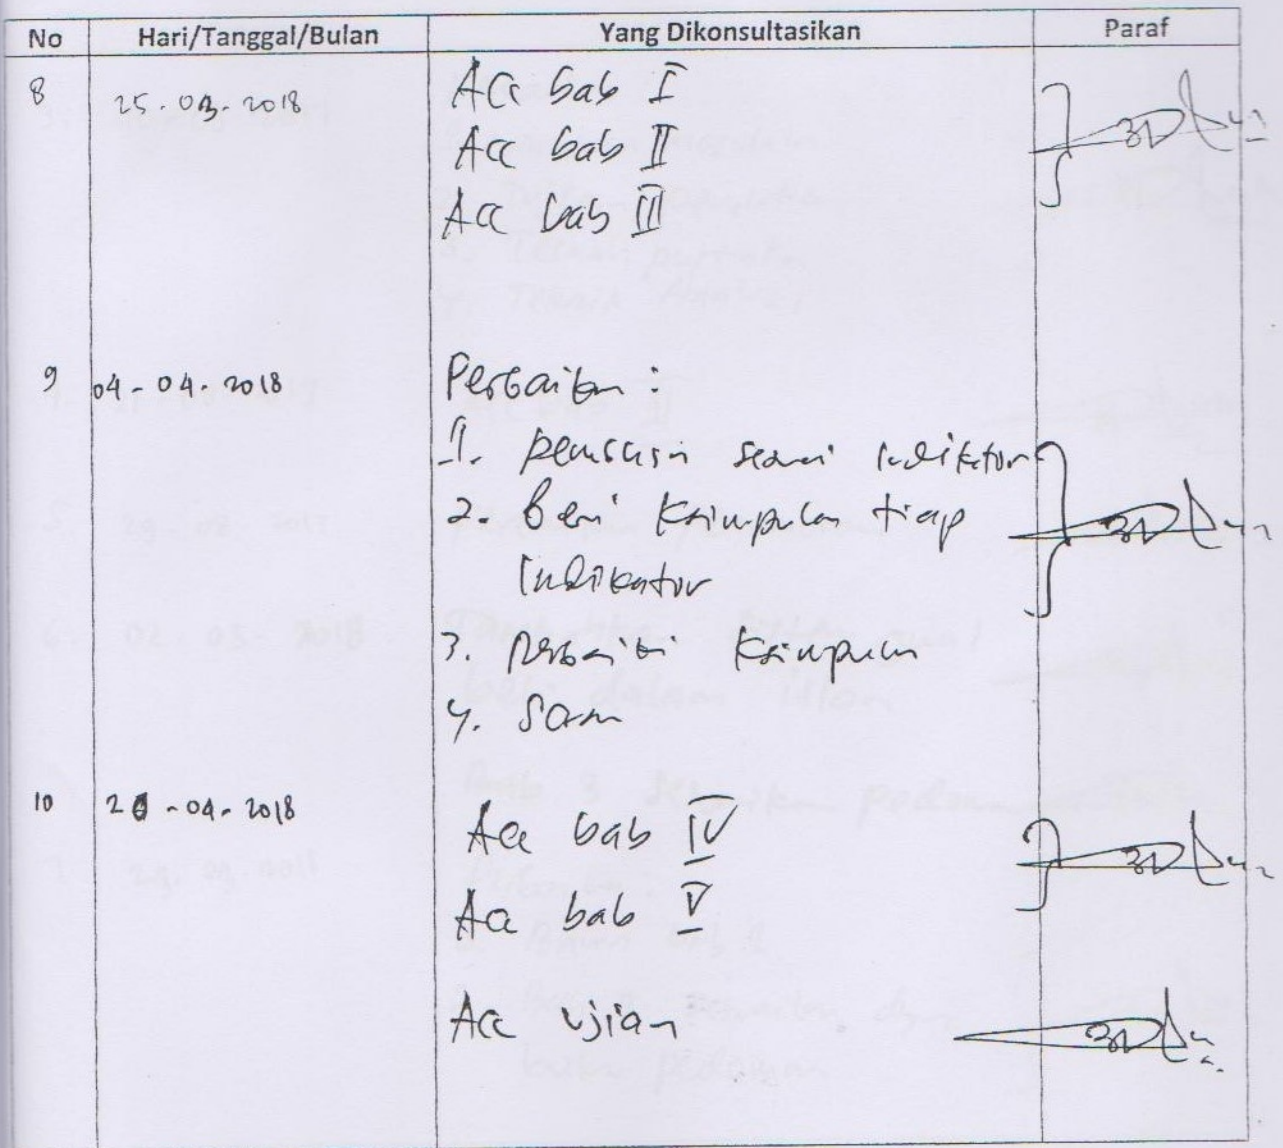 No Hari/Tanggal/Bulan Yang Dikonsultasikan Paraf
8 25-03-2018 Acc bab I
Acc bab II
Acc bab III
9 04-04-2018 Perbaikan :
1. indikator
2. Beri kesimpulan tiap
indikator
3. perbaiki
4. Saran
10 -04-2018 Acc bab IV
Acc bab V
Acc ujian